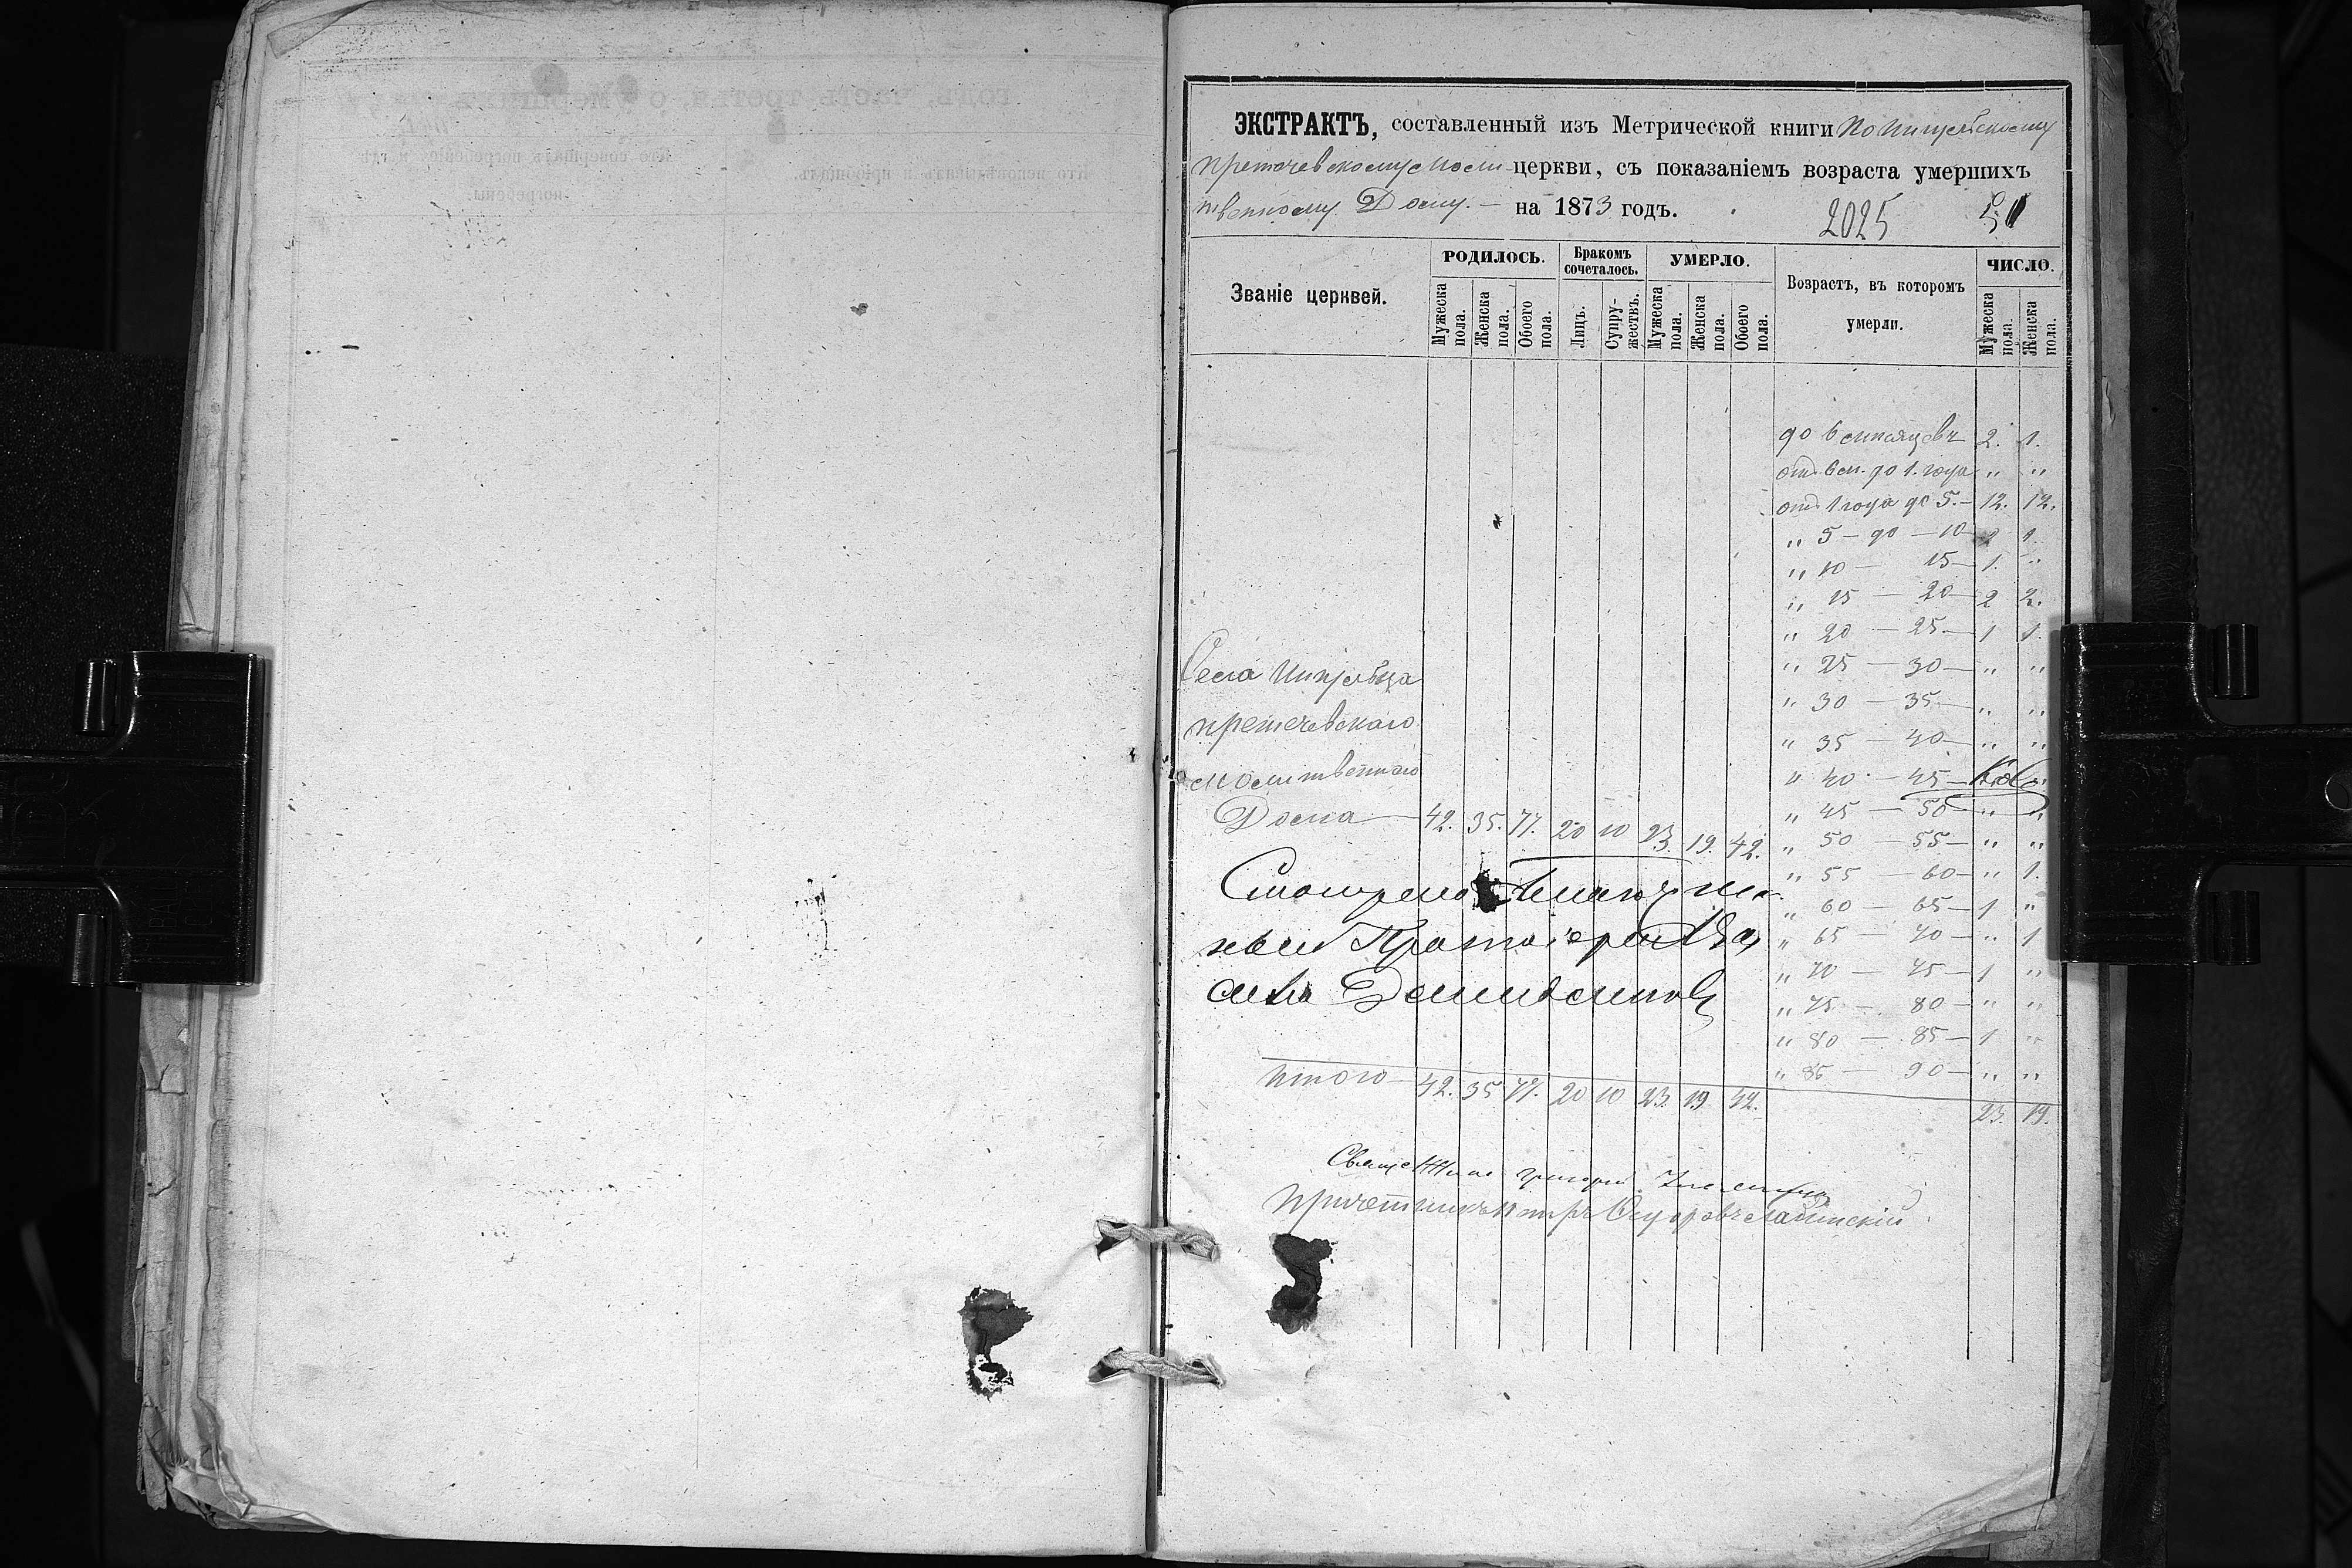 ЭКСТРАКТЪ, составленный изъ Метрической книги по
претечевскому молит-церкви, съ показаніемъ возраста умершихъ
твенному Дому. — на 1873 годъ.
2025
Званіе церквей.
РОДИЛОСЬ. Бракомъ сочеталось. УМЕРЛО. Возрастъ, въ которомъ умерли. ЧИСЛО.
Мужеска пола. Женска пола. Обоего пола. Лицъ. Супружествъ. Мужеска пола. Женска пола. Обоего пола. Мужеска пола. Женска пола.
до 6 мѣсяцевъ 2. 1.
отъ 6 м. до 1. года " "
отъ 1 года до 5. — 12. 12.
" 5 — до — 10 — 2 1.
" 10 — 15 — 1. "
" 15 — 20 — 2 2.
" 20 — 25 — 1 1.
" 25 — 30 — " "
" 30 — 35 — " "
" 35 — 40 — " "
" 40 — 45 —
" 45 — 50 — " "
" 50 — 55 — " "
" 55 — 60 — " 1.
" 60 — 65 — 1 "
" 65 — 70 — " 1
" 70 — 75 — 1 "
" 75 — 80 — " "
" 80 — 85 — 1 "
" 85 — 90 — " "
23. 19.
Села
претечевскаго
молитвеннаго
Дома — 42. 35. 77. 20 10 23. 19. 42.
Смотрено
Протоіерей
итого — 42. 35 77. 20 10 23. 19 42.
Григорій
Причетникъ Петръ